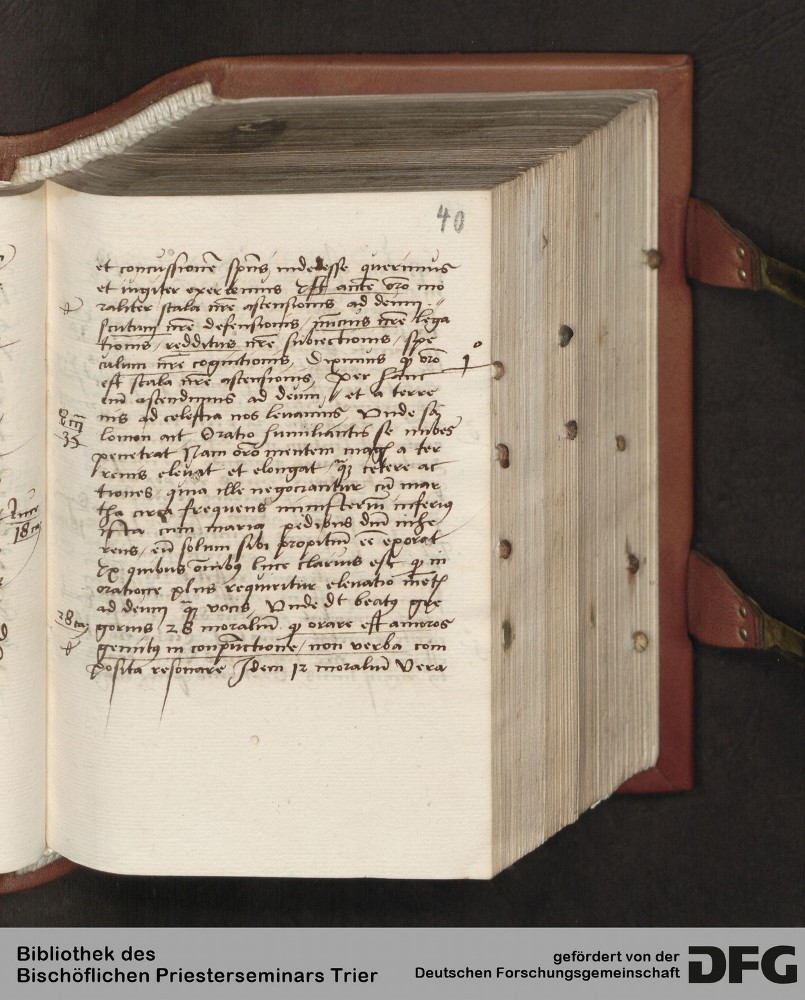 40
et concussionē spūs indeesse querimus
et iugiter exercemus Est ante oro mo
raliter scala nre ascensionis ad deum
scutum nre defensionis / nre lega
tionis / redditus nre subiectionis / spe
culum nre cognitionis, Dicimus oro
est scala nre ascensionis, Per hanc
ascendimus ad deum, et a terre
nis ad celestia nos levamus Unde sa
lomon ait Oratio humiliantis se nubes
penetrat Nam oro mentem a ter
renis elevat et elongat cetere ac
tiones quia ille negociantur cū mar
tha circa frequens ministeriū inferius
ista cum maria pedibus dni inhe
rens, eū solum sibi propitiū eē exorat
Ex quibus omibus luce clarius est in
oratione plus requiritur elevatio
ad deum vocis, Unde dt beatus gre
gorius 28 moraliū orare est amaros
gemitus in conpunctione / non verba com
posita resonare Idem 12 moraliū Vera
18
28
Bibliothek des
Bischöflichen Priesterseminars Trier
gefördert von der
Deutschen Forschungsgemeinschaft
DFG